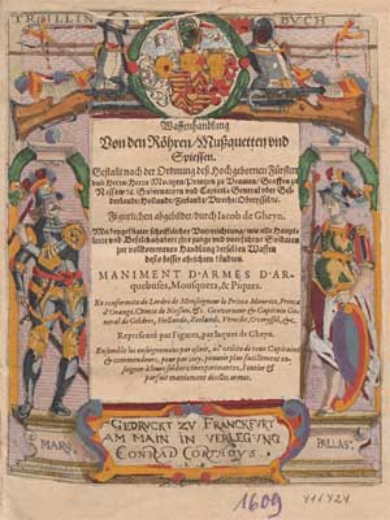 TRILLIN BVCH
Waffenhandlung
Von den Röhren/Mußquetten vnd
Spiessen.
Gestalt nach der Ordnung deß Hochgebornen Fürsten
vnd Herrn Herrn Moritzen/Printzen zu Oranien/Graffen zu
Nassaw ꝛc. Gubernatorn vnd Capiteis General vber Gel-
derlandt/Hollandt/Seelandt/Vtrecht/Oberyssel ꝛc.
Figurlichen abgebildet/durch Iacob de Gheyn.
Mit beygefügter schrifftlicher Vnterrichtung/wie alle Haupt-
leute vnd Befelchshaber ihre junge vnd vnerfahrne Soldaten
zur vollkommenen Handlung derselben Waffen
desto besser abrichten
MANIMENT D'ARMES D'AR-
quebuses, Mousquets, & Piques.
En conformite de Lordre de Monseigneur le Prince Maurice, Prince
d'Orange, Comte de Nassau, &c. Gouverneur & Capitaine Ge-
neral de Geldres, Hollande, Zeelande, Vtrecht, Overyssel, &c.
Representé par Figures, par Iaques de Gheyn.
Ensemble les enseignemens par escrit, a l'utilite de tous Capitaines
& commendeurs, pour par icey, pouvoir plus facillement en-
seigner à leurs soldats inexperimentez, l'entier &
parfait maniement dicelles armes.
MARS. PALLAS.
GEDRVCKT ZV FRANCKFVRT
AM MAIN IN VERLEGVNG
CONRAD CORTHOYS.
1609